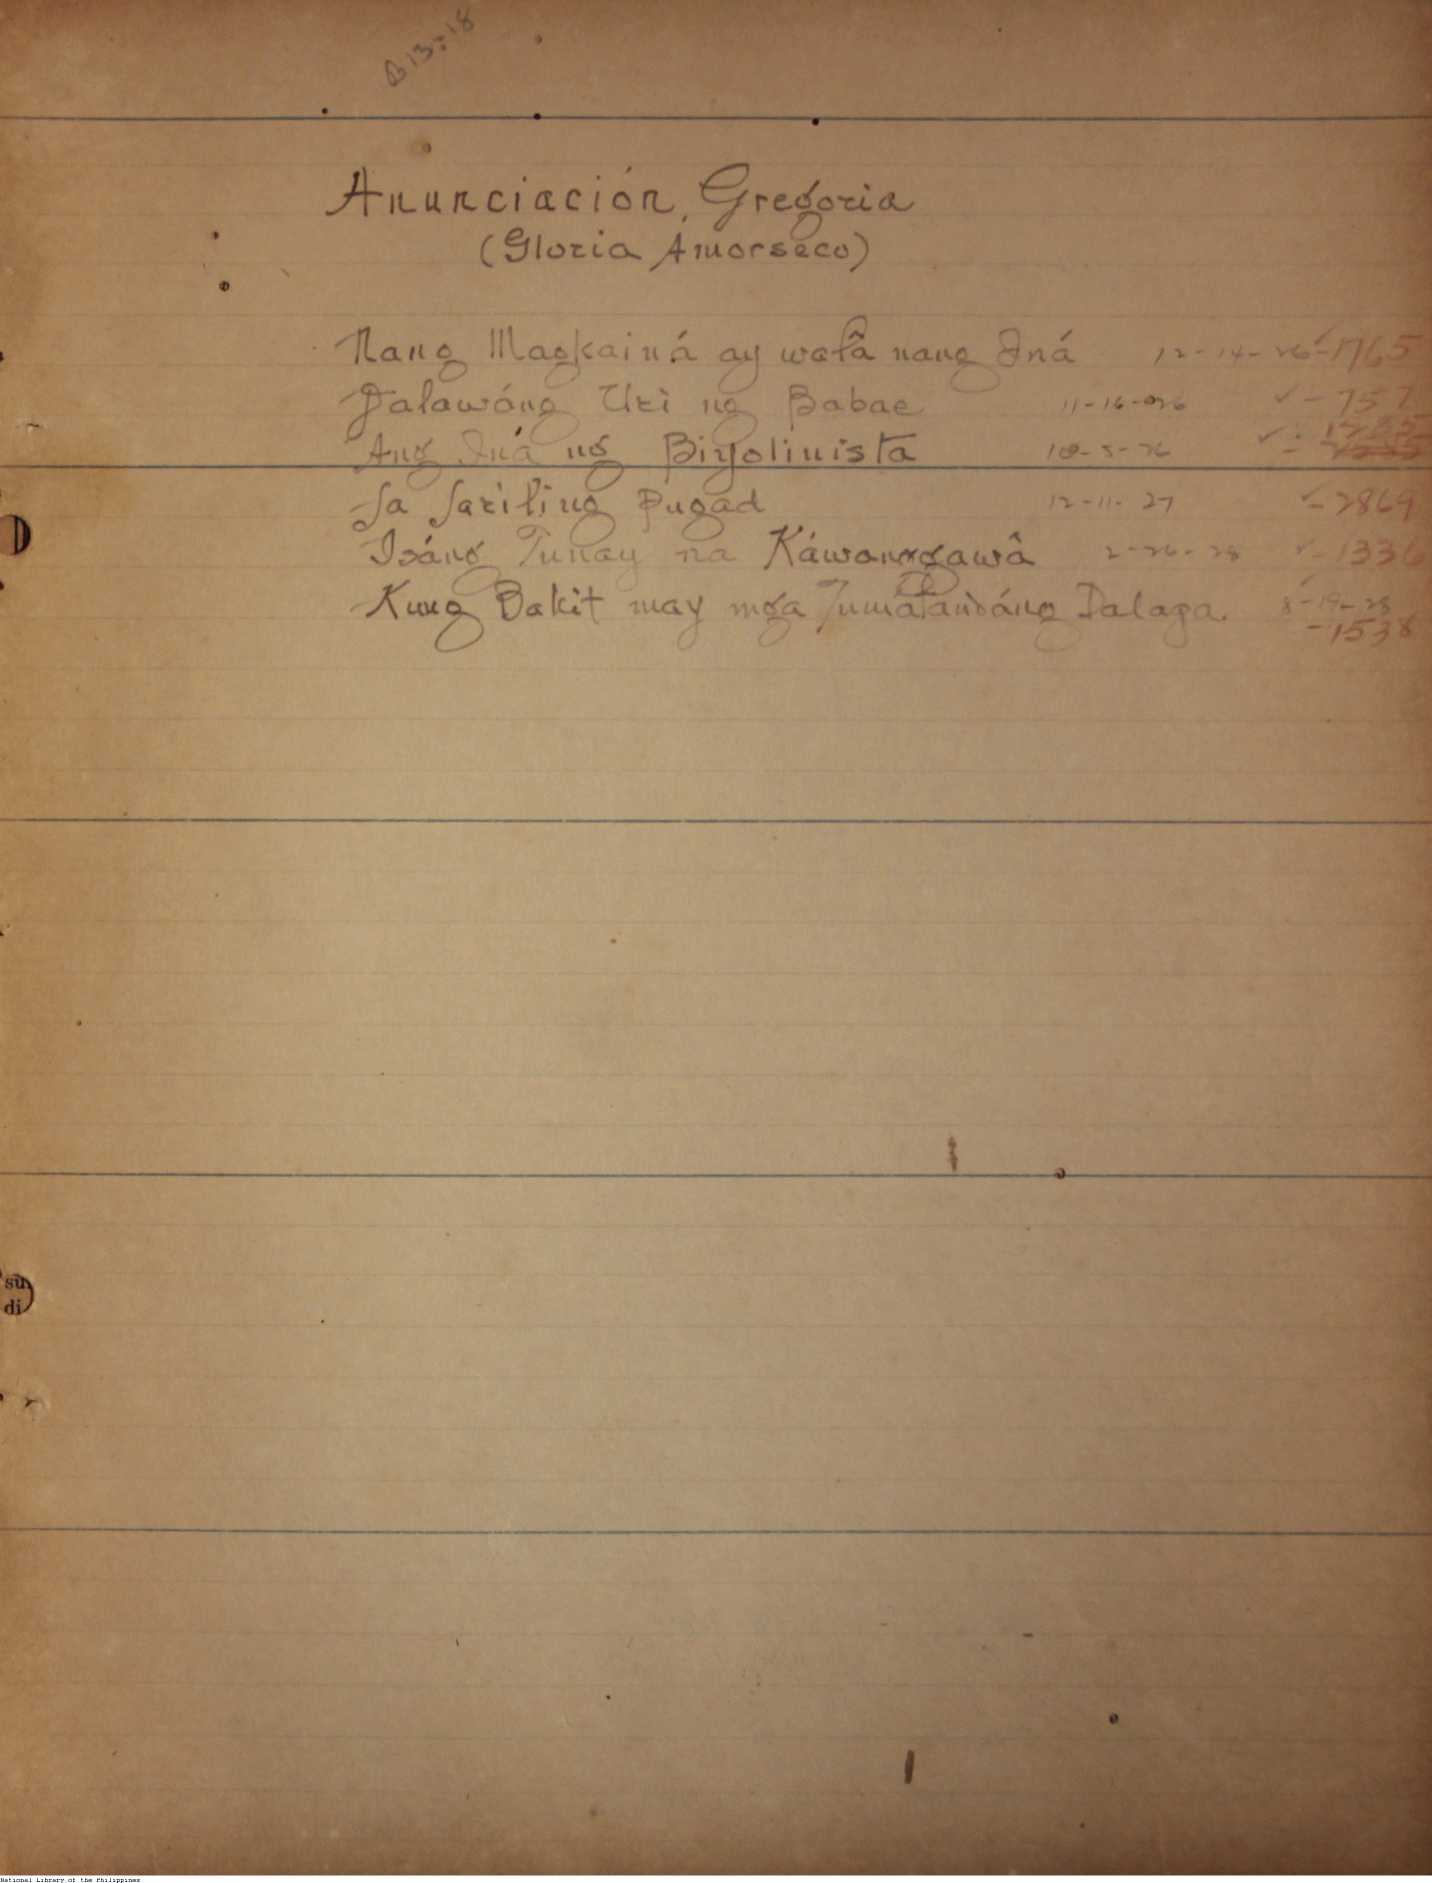 B13:18
Anunciación, Gregoria
(Gloria Amorseco)
Nang Magkainá ay walâ nang Iná 12-14-26 ✓-1765
Dalawáng Uri ng Babae 11-16-926 ✓-757
Ang Iná ng Biyolinista 10-5-26 ✓- 1785
Sa Sariling Pugad 12-11-27 ✓-2869
Isáng Tunay na Káwanggawâ 2-26-28 ✓-1336
Kung Bakit may mga Tumátandáng Dalaga. 8-19-28
-1538
su
di
National Library of the Philippines